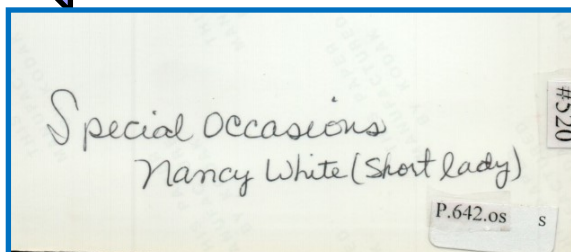 Special Occasions
Nancy White (Short lady)
#520
P.642.os s